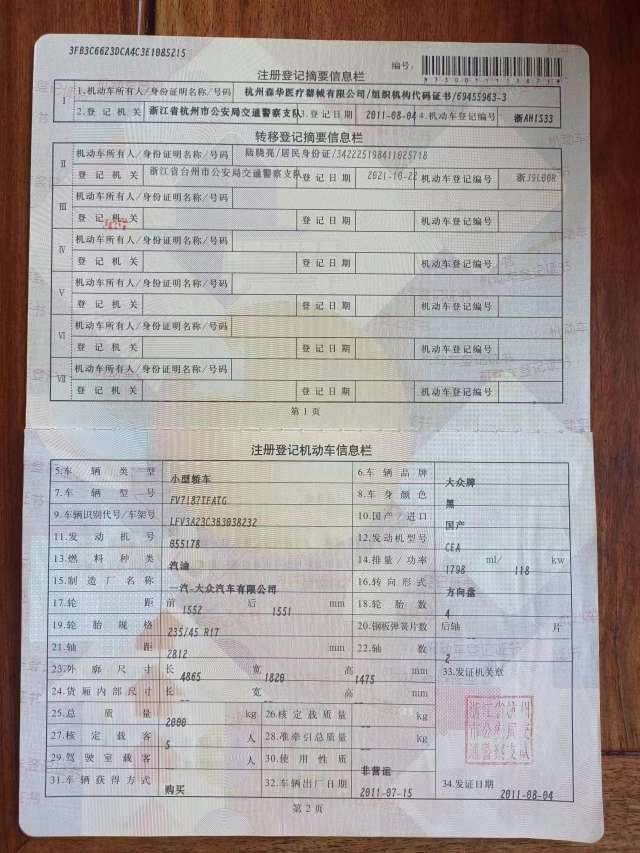 3FB3C6623DCA4C3E1085215
编号:
注册登记摘要信息栏
I 1.机动车所有人/身份证明名称/号码 杭州森华医疗器械有限公司/组织机构代码证书/69455963-3
2.登记机关 浙江省杭州市公安局交通警察支队 3.登记日期 2011-08-04 4.机动车登记编号 浙AH1S33
转移登记摘要信息栏
II 机动车所有人/身份证明名称/号码 陆晓亮/居民身份证/342225198411025718
登记机关 浙江省台州市公安局交通警察支队 登记日期 2021-10-22 机动车登记编号 浙J9L00R
III 机动车所有人/身份证明名称/号码
登记机关 登记日期 机动车登记编号
IV 机动车所有人/身份证明名称/号码
登记机关 登记日期 机动车登记编号
V 机动车所有人/身份证明名称/号码
登记机关 登记日期 机动车登记编号
VI 机动车所有人/身份证明名称/号码
登记机关 登记日期 机动车登记编号
VII 机动车所有人/身份证明名称/号码
登记机关 登记日期 机动车登记编号
第1页
注册登记机动车信息栏
5.车辆类型 小型轿车 6.车辆品牌 大众牌
7.车辆型号 FV7187TFATG 8.车身颜色 黑
9.车辆识别代号/车架号 LFV3A23C3B3038232 10.国产/进口 国产
11.发动机号 055178 12.发动机型号 CEA
13.燃料种类 汽油 14.排量/功率 1798 ml/ 118 kw
15.制造厂名称 一汽-大众汽车有限公司 16.转向形式 方向盘
17.轮距 前 1552 后 1551 mm 18.轮胎数 4
19.轮胎规格 235/45 R17 20.钢板弹簧片数 后轴 片
21.轴距 2812 mm 22.轴数 2
23.外廓尺寸 长 4865 宽 1820 高 1475 mm 33.发证机关章
24.货厢内部尺寸 长 宽 高 mm
25.总质量 2000 kg 26.核定载质量 kg
27.核定载客 5 人 28.准牵引总质量 kg
29.驾驶室载客 人 30.使用性质 非营运
31.车辆获得方式 购买 32.车辆出厂日期 2011-07-15 34.发证日期 2011-08-04
第2页